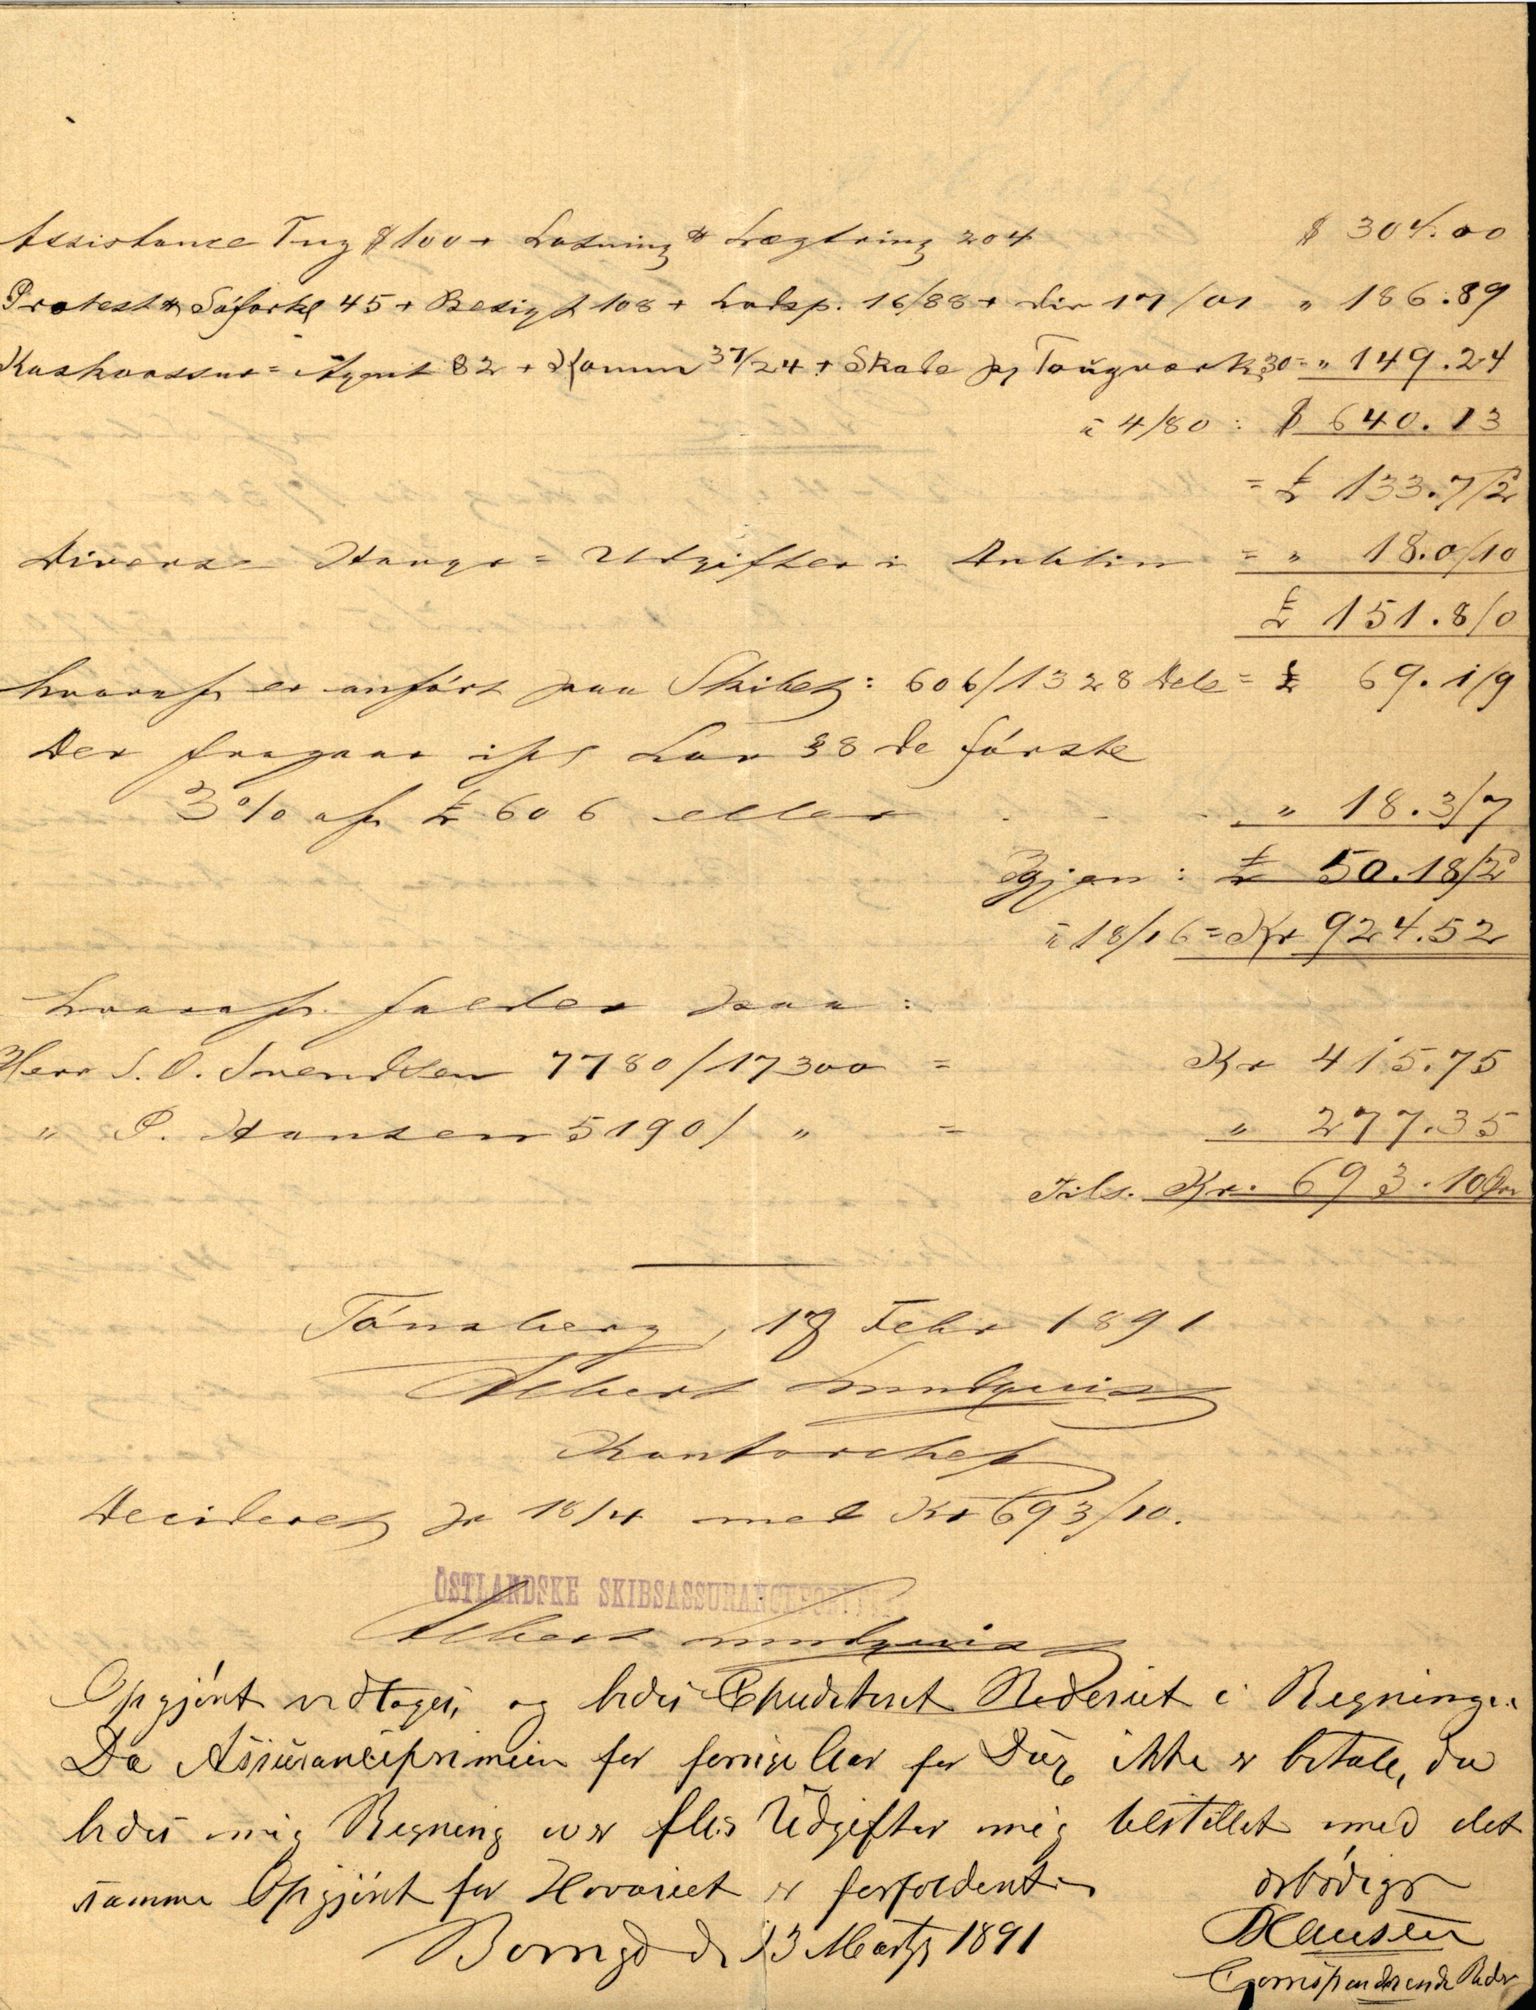 Assistance Tug $ 100 + Losning & Lægtring 204 $ 304.00
Protest & Söforkl 45 + Besigt 108 + Lodsp. 16/88 + div 17/01 „ 186.89
Agent 82 + Komm 37/24 + Skade paa Tougværk 30 = „ 149.24
à 4/80 : $ 640.13
= £ 133.7/2
Diverse Havar= Udgifter i Dublin = „ 18.0/10
£ 151.8/0
hvoraf er anført paa Skibet: 606/1328 Dele = £ 69.1/9
Der fragaar ifl Lov §8 de første
3% af £ 606 eller „ 18.3/7
Igjen : £ 50.18/2
à 18/16 = Kr 924.52
hvoraf falder paa :
Herr S. O. Svendsen 7780/17300 = Kr 415.75
„ P. Hansen 5190/ „ = „ 277.35
Tils. Kr. 693.10 Øre
Tönsberg, 18 Febr 1891
Albert Lundquist
Kontorchef
Decideret pr 18/4 med Kr 693/10.
ÖSTLANDSKE SKIBSASSURANCEFORENING
Albert Lundquist
Opgjört vedtages, og bedes Crediteret Rederiet i Regning.
Da Assuranceprimien for forrige Aar for ikke er betalt, da
bedes mig Regning over fles Udgifter mig tilstillet med det
samme Opgjöret for Havariet er forfaldent
ærbödigst
d 13 Marts 1891
P Hansen
Corresponderende Reder